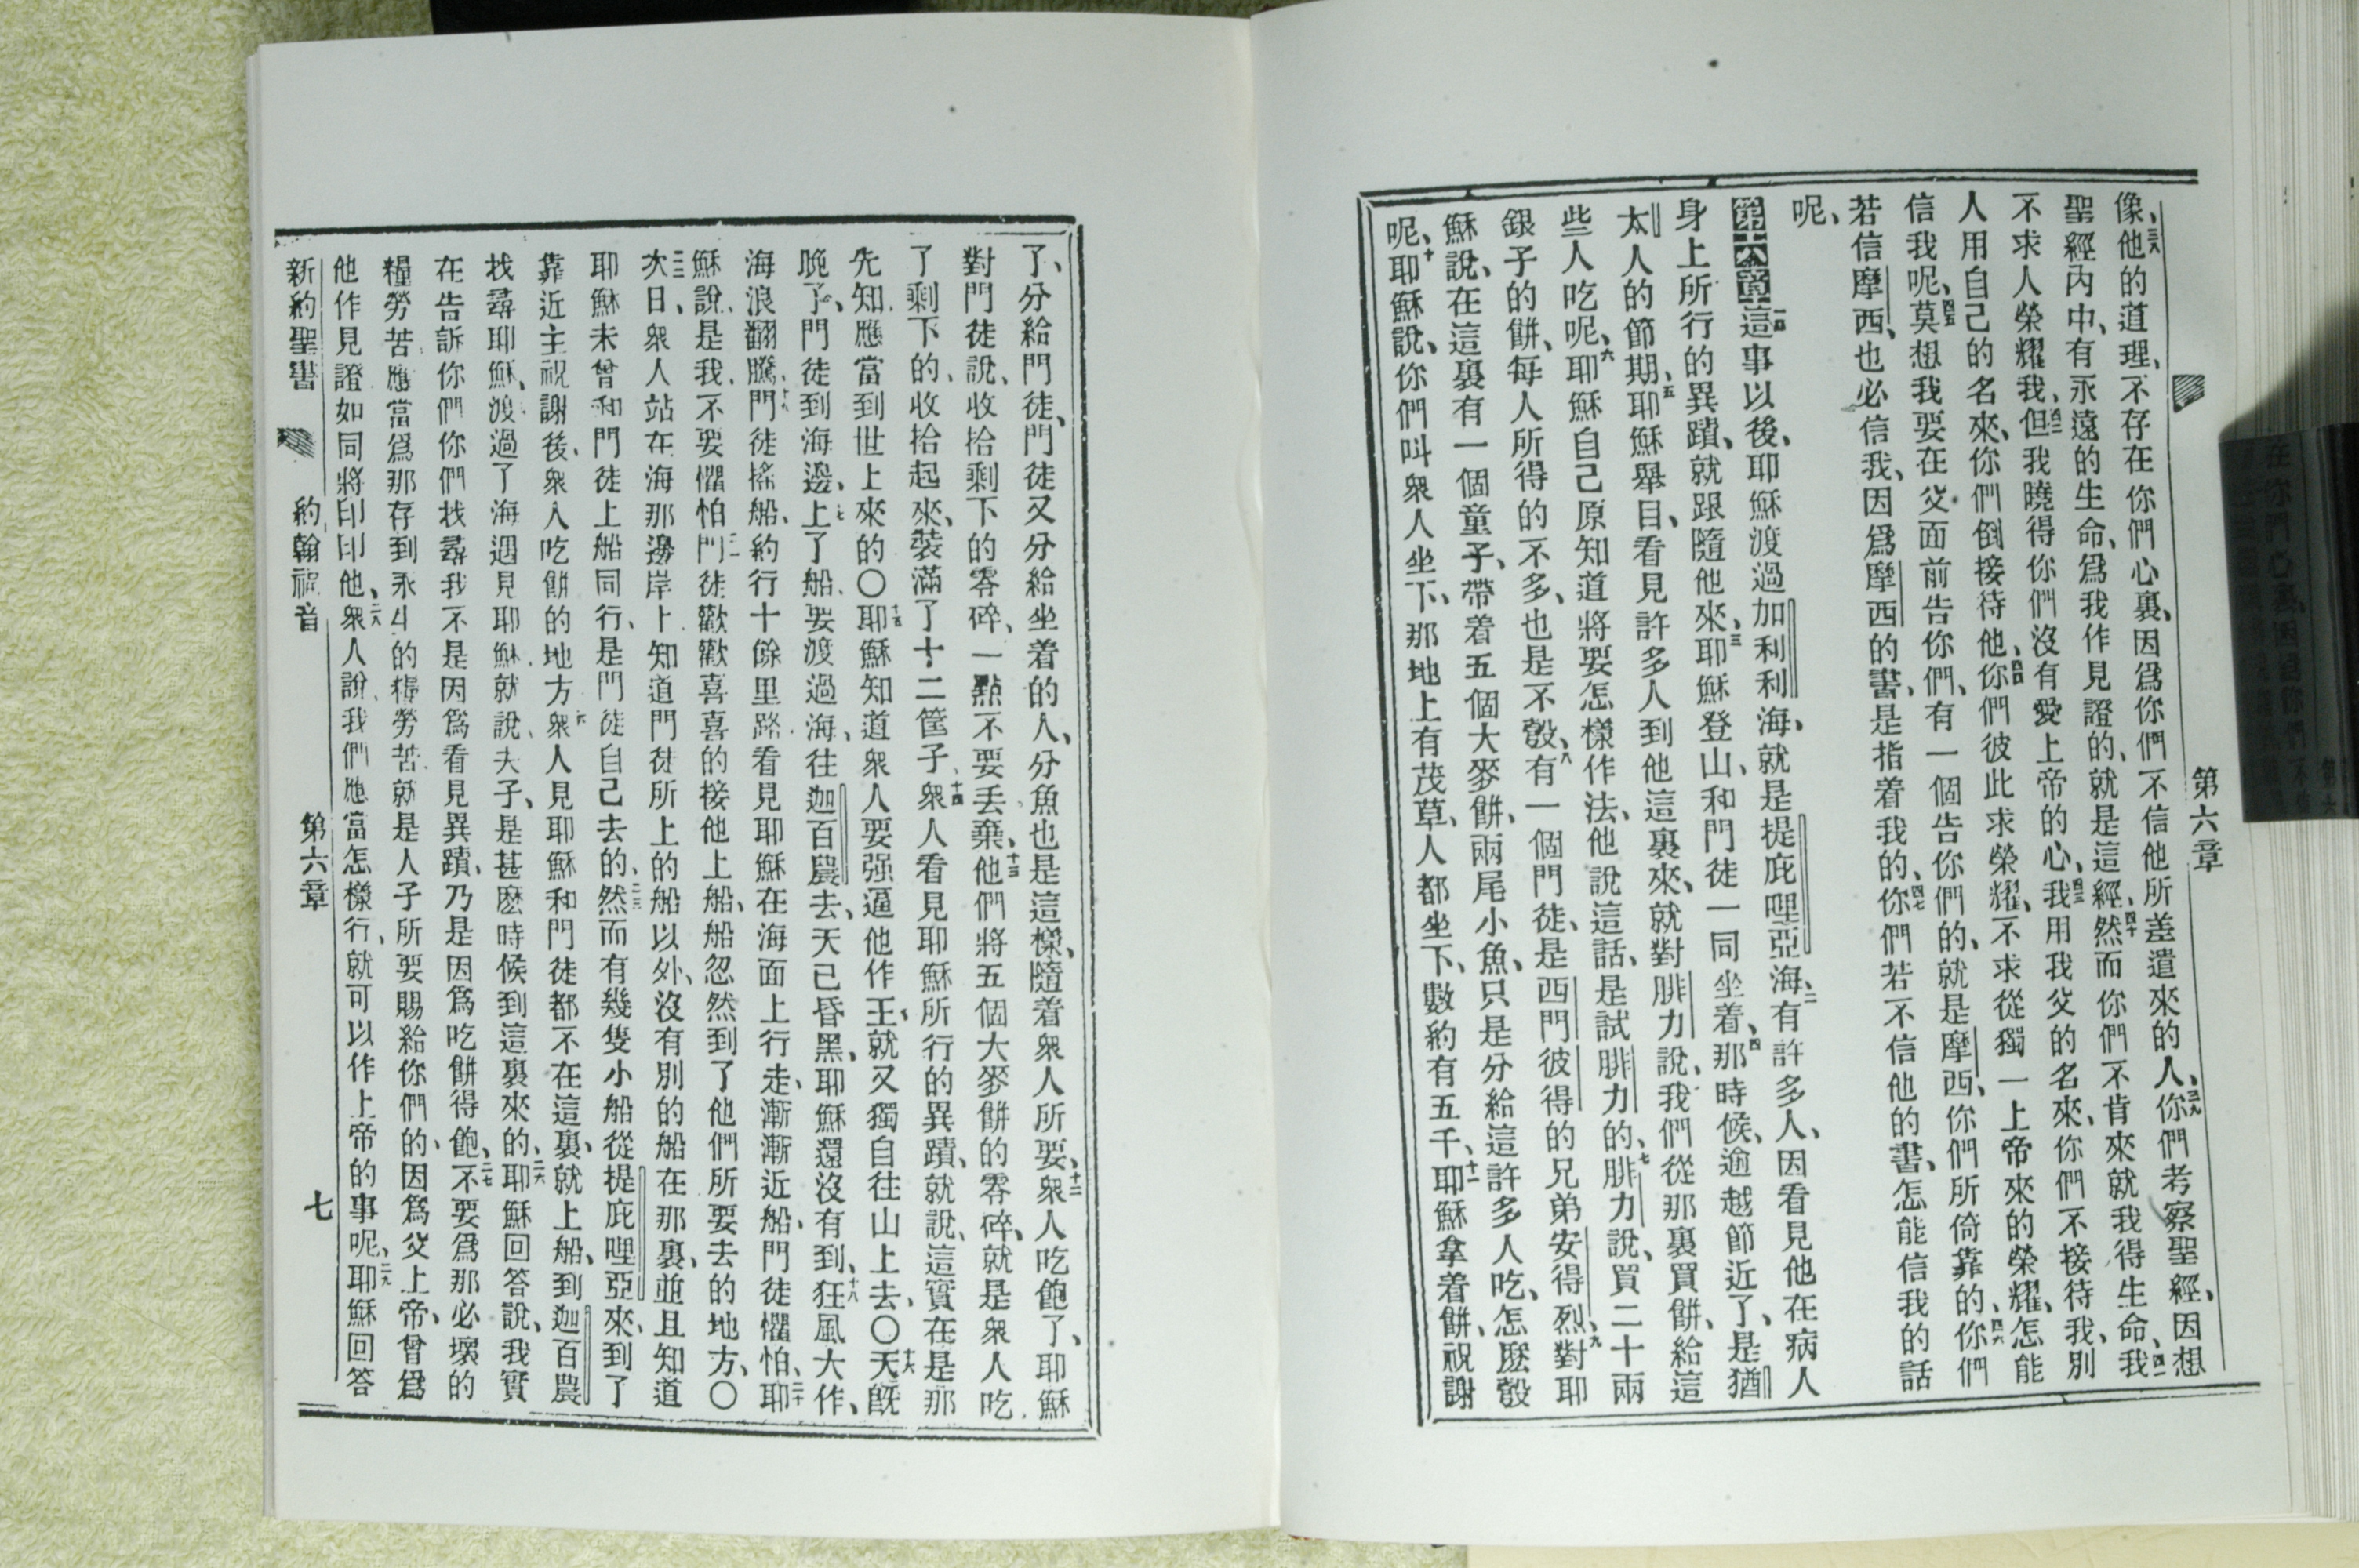 第六章
像、三八他的道理、不存在你們心裏、因爲你們不信他所差遣來的人、三九你們考察聖經、因想
聖經內中、有永遠的生命、爲我作見證的、就是這經、四十然而你們不肯來就我得生命、四一我
不求人榮耀我、四二但我曉得你們沒有愛上帝的心、四三我用我父的名來、你們不接待我、別
人用自己的名來、你們倒接待他、四四你們彼此求榮耀、不求從獨一上帝來的榮耀、怎能
信我呢、四五莫想我要在父面前告你們、有一個告你們的、就是摩西、你們所倚靠的、四六你們
若信摩西、也必信我、因爲摩西的書、是指着我的、四七你們若不信他的書、怎能信我的話
呢、
第六章一這事以後、耶穌渡過加利利海、就是提庇哩亞海、二有許多人、因看見他在病人
身上所行的異蹟、就跟隨他來、三耶穌登山、和門徒一同坐着、四那時候、逾越節近了、是猶
太人的節期、五耶穌舉目、看見許多人到他這裏來、就對腓力說、我們從那裏買餅、給這
些人吃呢、六耶穌自己原知道將要怎樣作法、他說這話、是試腓力的、七腓力說、買二十兩
銀子的餅、每人所得的不多、也是不彀、八有一個門徒、是西門彼得的兄弟安得烈、九對耶
穌說、在這裏有一個童子、帶着五個大麥餅、兩尾小魚、只是分給這許多人吃、怎麽彀
呢、十耶穌說、你們叫衆人坐下、那地上有茂草、人都坐下、數約有五千、十一耶穌拿着餅、祝謝
了、分給門徒、門徒又分給坐着的人、分魚也是這樣、隨着衆人所要、十二衆人吃飽了、耶穌
對門徒說、收拾剩下的零碎、一點不要丟棄、十三他們將五個大麥餅的零碎、就是衆人吃
了剩下的、收拾起來、裝滿了十二筐子、十四衆人看見耶穌所行的異蹟、就說、這實在是那
先知、應當到世上來的〇十五耶穌知道衆人要强逼他作王、就又獨自往山上去、〇十六天旣
晚了、門徒到海邊、十七上了船、要渡過海、往迦百農去、天已昏黑、耶穌還沒有到、十八狂風大作、
海浪翻騰、十九門徒搖船、約行十餘里路、看見耶穌在海面上行走、漸漸近船、門徒懼怕、二十耶
穌說、是我、不要懼怕、二一門徒歡歡喜喜的接他上船、船忽然到了他們所要去的地方、〇
二二次日、衆人站在海那邊岸上知道門徒所上的船以外、沒有別的船在那裏、並且知道
耶穌未曾和門徒上船同行、是門徒自己去的、二三然而有幾隻小船從提庇哩亞來、到了
靠近主祝謝後、衆人吃餅的地方、二四衆人見耶穌和門徒都不在這裏、就上船、到迦百農
找尋耶穌、渡過了海、遇見耶穌、就說、夫子、是甚麽時候到這裏來的、二六耶穌回答說、我實
在告訴你們、你們找尋我、不是因爲看見異蹟、乃是因爲吃餅得飽、二七不要爲那必壞的
糧勞苦、應當爲那存到永生的糧勞苦、就是人子所要賜給你們的、因爲父上帝、曾爲
他作見證如同將印印他、二八衆人說、我們應當怎樣行、就可以作上帝的事呢、二九耶穌回答
新約聖書 約翰福音 第六章 七